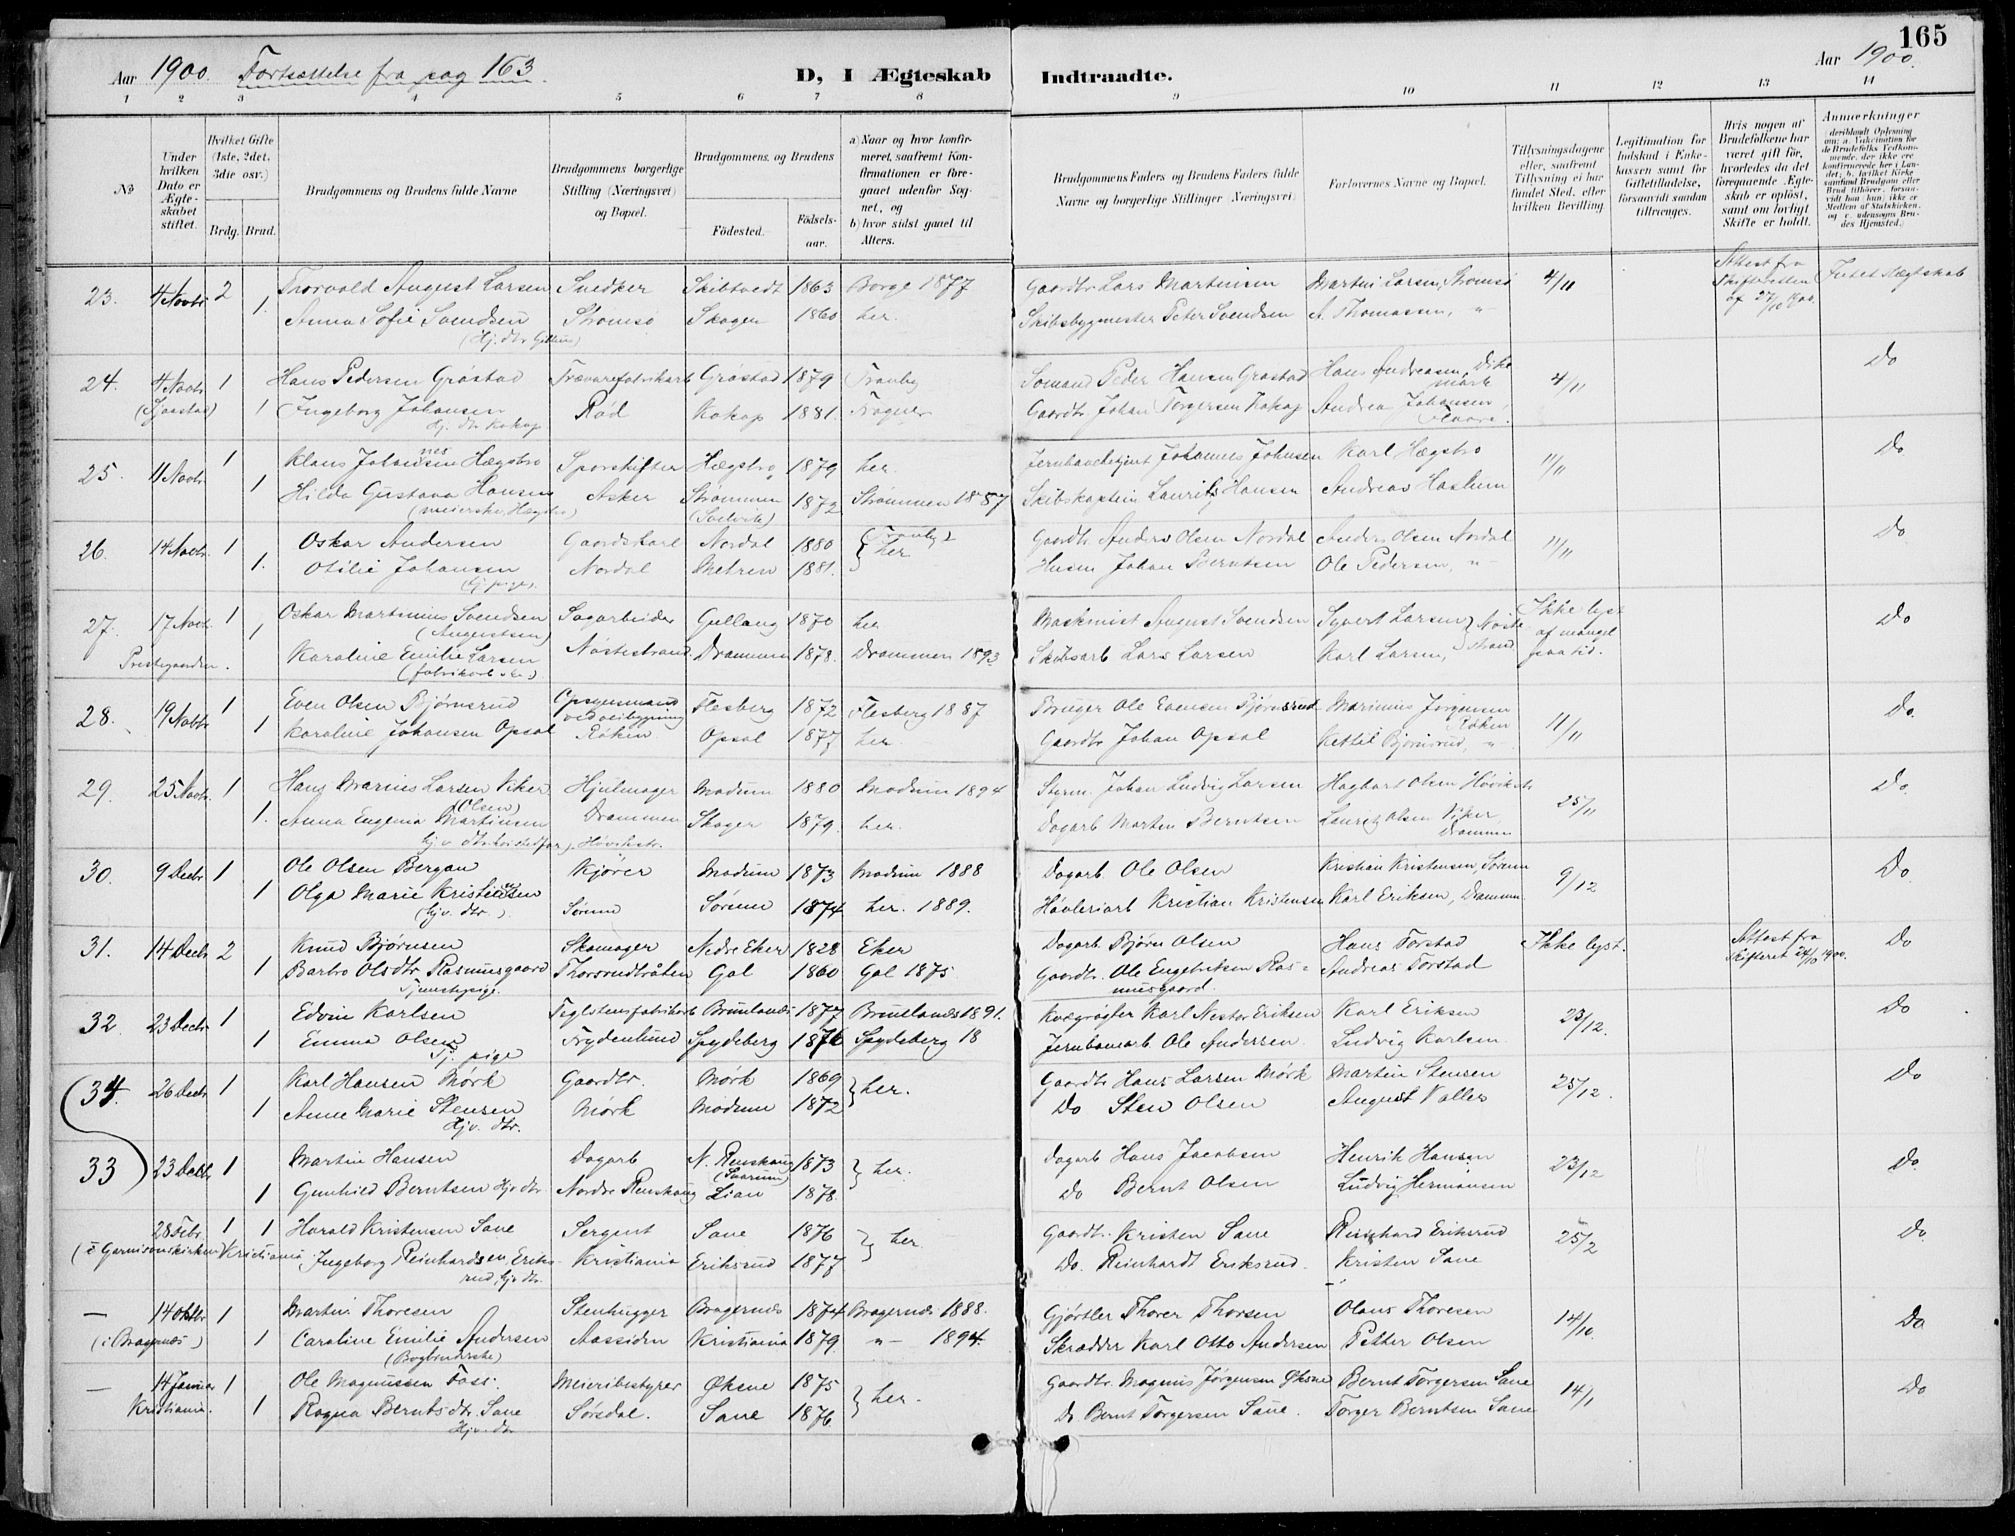 165
Aar 1900. Fortsættelse fra pag 163.
D, I Ægteskab Indtraadte.
Aar 1900.
1 2 3 4 5 6 7 8 9 10 11 12 13 14
No
Under hvilken Dato er Ægteskabet stiftet.
Hvilket Gifte (1ste, 2det, 3die osv.)
Brdg. Brud.
Brudgommens og Brudens fulde Navne
Brudgommens borgerlige Stilling (Næringsvei) og Bopæl.
Brudgommens og Brudens
Födested. Födsels-aar.
a) Naar og hvor konfirmeret, saafremt Konfirmationen er foregaaet udenfor Sognet, og
b) hvor sidst gaaet til Alters.
Brudgommens Faders og Brudens Faders fulde Navne og borgerlige Stillinger (Næringsvei)
Forlovernes Navne og Bopæl.
Tillysningsdagene eller, saafremt Tillysning ei har fundet Sted, efter hvilken Bevilling.
Legitimation for Indskud i Enkekassen samt for Giftetilladelse, forsaavidt saadan tiltrænges.
Hvis nogen af Brudefolkene har været gift för, hvorledes da det foregaaende Ægteskab er oplöst, samt om lovligt Skifte er holdt.
Anmærkninger
23. 4 Novbr 2 Thorvald August Larsen Snedker Skibtvedt 1863 Borge 1877 Gaardbr Lars Martinsen Martin Larsen, Strømsø 4/11 Attest fra Skifteretten af 27/10 1900. Intet slegtskab
1. Anna Sofie Svendsen Strømsø Skoger 1860 her. Skibsbygmester Peter Svendsen A. Thomassen, "
24. 4 Novbr 1 Hans Pedersen Gråstad Trævarefabrikarb Gråstad 1879 Tranby Sømand Peder Hansen Gråstad Hans Andreasen Dikemark 4/11 Do
1 Ingeborg Johansen Rød Kokop 1881. Fragner Gaardbr. Johan Torgersen Kokop Andreas Johansen
Hj. dtr Kokop
25. 11 Novbr 1 Klaus Johannesen Hægsbro Sporskifter Hægsbro 1879 her. Jernbanebetjent Johannes Johnsen Karl Hægsbro 11/11 Do
1 Hilda Gustava Hansen Asker Strømmen 1872 Strømmen 1887 Skibskaptein Laurits Hansen Andreas Haslum
(meierske, Hægsbro) (Svelvik)
26. 14 Novbr. 1 Oskar Andersen Gaardskarl Nordal 1880 (Tranby) Gaardbr Anders Olsen Nordal Anders Olsen Nordal 11/11 Do
1. Otilie Johansen Nordal Mehren 1881. her Husm Johan Berntsen Ole Pedersen, "
27. 17 Novbr. 1 Oskar Martinius Svendsen Sagarbeider Gullaug 1870 her Maskinist August Svendsen Syvert Larsen Ikke lyst af mangel paa tid. Do
(Augustsen)
Prestegaarden. 1 Karoline Emilie Larsen Nøstestrand Drammen 1878. Drammen 1893 Skibsarb Lars Larsen Karl Larsen,
28. 19 Novbr 1 Even Olsen Bjørnsrud Opsynsmand ved veibygning Flesberg 1872 Flesberg 1887 Bruger Ole Evensen Bjørnsrud Marinius Jørgensen Røken 11/11 Do.
1 Karoline Johansen Opsal Røken Opsal 1877 her. Gaardbr Johan Opsal Kettil Bjørnsrud, "
29. 25 Novbr. 1 Hans Marius Larsen Viker Hjulmager Modum 1880 Modum 1894 Styrm. Johan Ludvig Larsen Hagbart Olsen Høvikstr 25/11 Do.
(Olsen)
1. Anna Eugenia Martinsen Drammen Skoger 1879. her. Dagarb Morten Berntsen Lauritz Olsen Viker, Drammen
30. 9 Decbr 1 Ole Olsen Bergan Kjører Modum 1873 Modum 1888 Dagarb. Ole Olsen Kristian Kristensen, Sørum 9/12 Do
1 Olga Marie Kristiansen Sørum Sørum 1874 her. 1889. Høvleriarb Kristian Kristensen Karl Eriksen, Drammen
(Hjv. dtr.)
31. 14 Decbr 2 Knud Bjørnsen Skomager Nedre Eker 1828 Eker Dagarb Bjørn Olsen Hans Torstad Ikke lyst. Attest fra Skifteret 24/10 1900. Do
1 Barbro Olsdtr Rasmusgaard Thorsrudbråten Gol 1860 Gol 1875 Gaardbr. Ole Engebriksen Rasmusgaard Andreas Torstad
Tjenestepige.
32. 23 Decbr 1 Edvin Karlsen Teglstensfabrikarb Brunlanæs 1877 Brunlanæs 1891. Kvægrøgter Karl Nester Eriksen Karl Eriksen 23/12. Do
1 Emma Olsen Frydenlund Spydeberg 1876 Spydeberg 18 Jernbanearb. Ole Andersen Ludvig Karlsen
Tj. pige
34. 26 Decbr 1 Karl Hansen Mørk Gaardbr. Mørk 1869 her. Gaardbr Hans Larsen Mørk Martin Stensen 25/12. Do
1 Anne Marie Stensen Mørk Modum 1872 Do Sten Olsen August Valler
Hjv. dtr.
33 23 Decbr 1 Martin Hansen Dagarb N. Renskaug 1873 her. Dagarb Hans Jacobsen Henrik Hansen 23/12 Do.
1 Gunhild Berntsen Hjv dtr Nordre Renskaug Lian 1878. Do Bernt Olsen Ludvig Hermansen
28 Febr. 1 1 Harald Kristensen Sane Sergent Sane 1876 her Gaardbr. Kristen Sane Reinhard Eriksrud 25/2 Do.
(i Garnisonskirken Kristiania) Ingeborg Reinhardsen Eriksrud, Hjv dtr. Kristiania Eriksrud 1877 Do. Reinhardt Eriksrud. Kristen Sane
— 14 Oktbr 1 Martin Thoresen Stenhugger Bragernæs 1874 Bragernæs 1888. Gjørtler Thorer Thorsen Olaus Thoresen 14/10. Do
(i Bragernæs) 1 Caroline Emilie Andersen Aassiden Kristiania 1879 " 1894. Skrædder Karl Otto Andersen Petter Olsen
(Bogbinderske)
— 14 Januar 1 Ole Magnussen Foss. Meieribestyrer Øksne 1875 her. Gaardbr. Magnus Jørgensen Øksne Bernt Torgersen Sane 14/1 Do
Kristiania. 1 Ragna Berntsdtr. Sane Sørsdal. Sane 1876 Do Bernt Torgersen Sane. Torger Berntsen Sane
Hjv. dtr